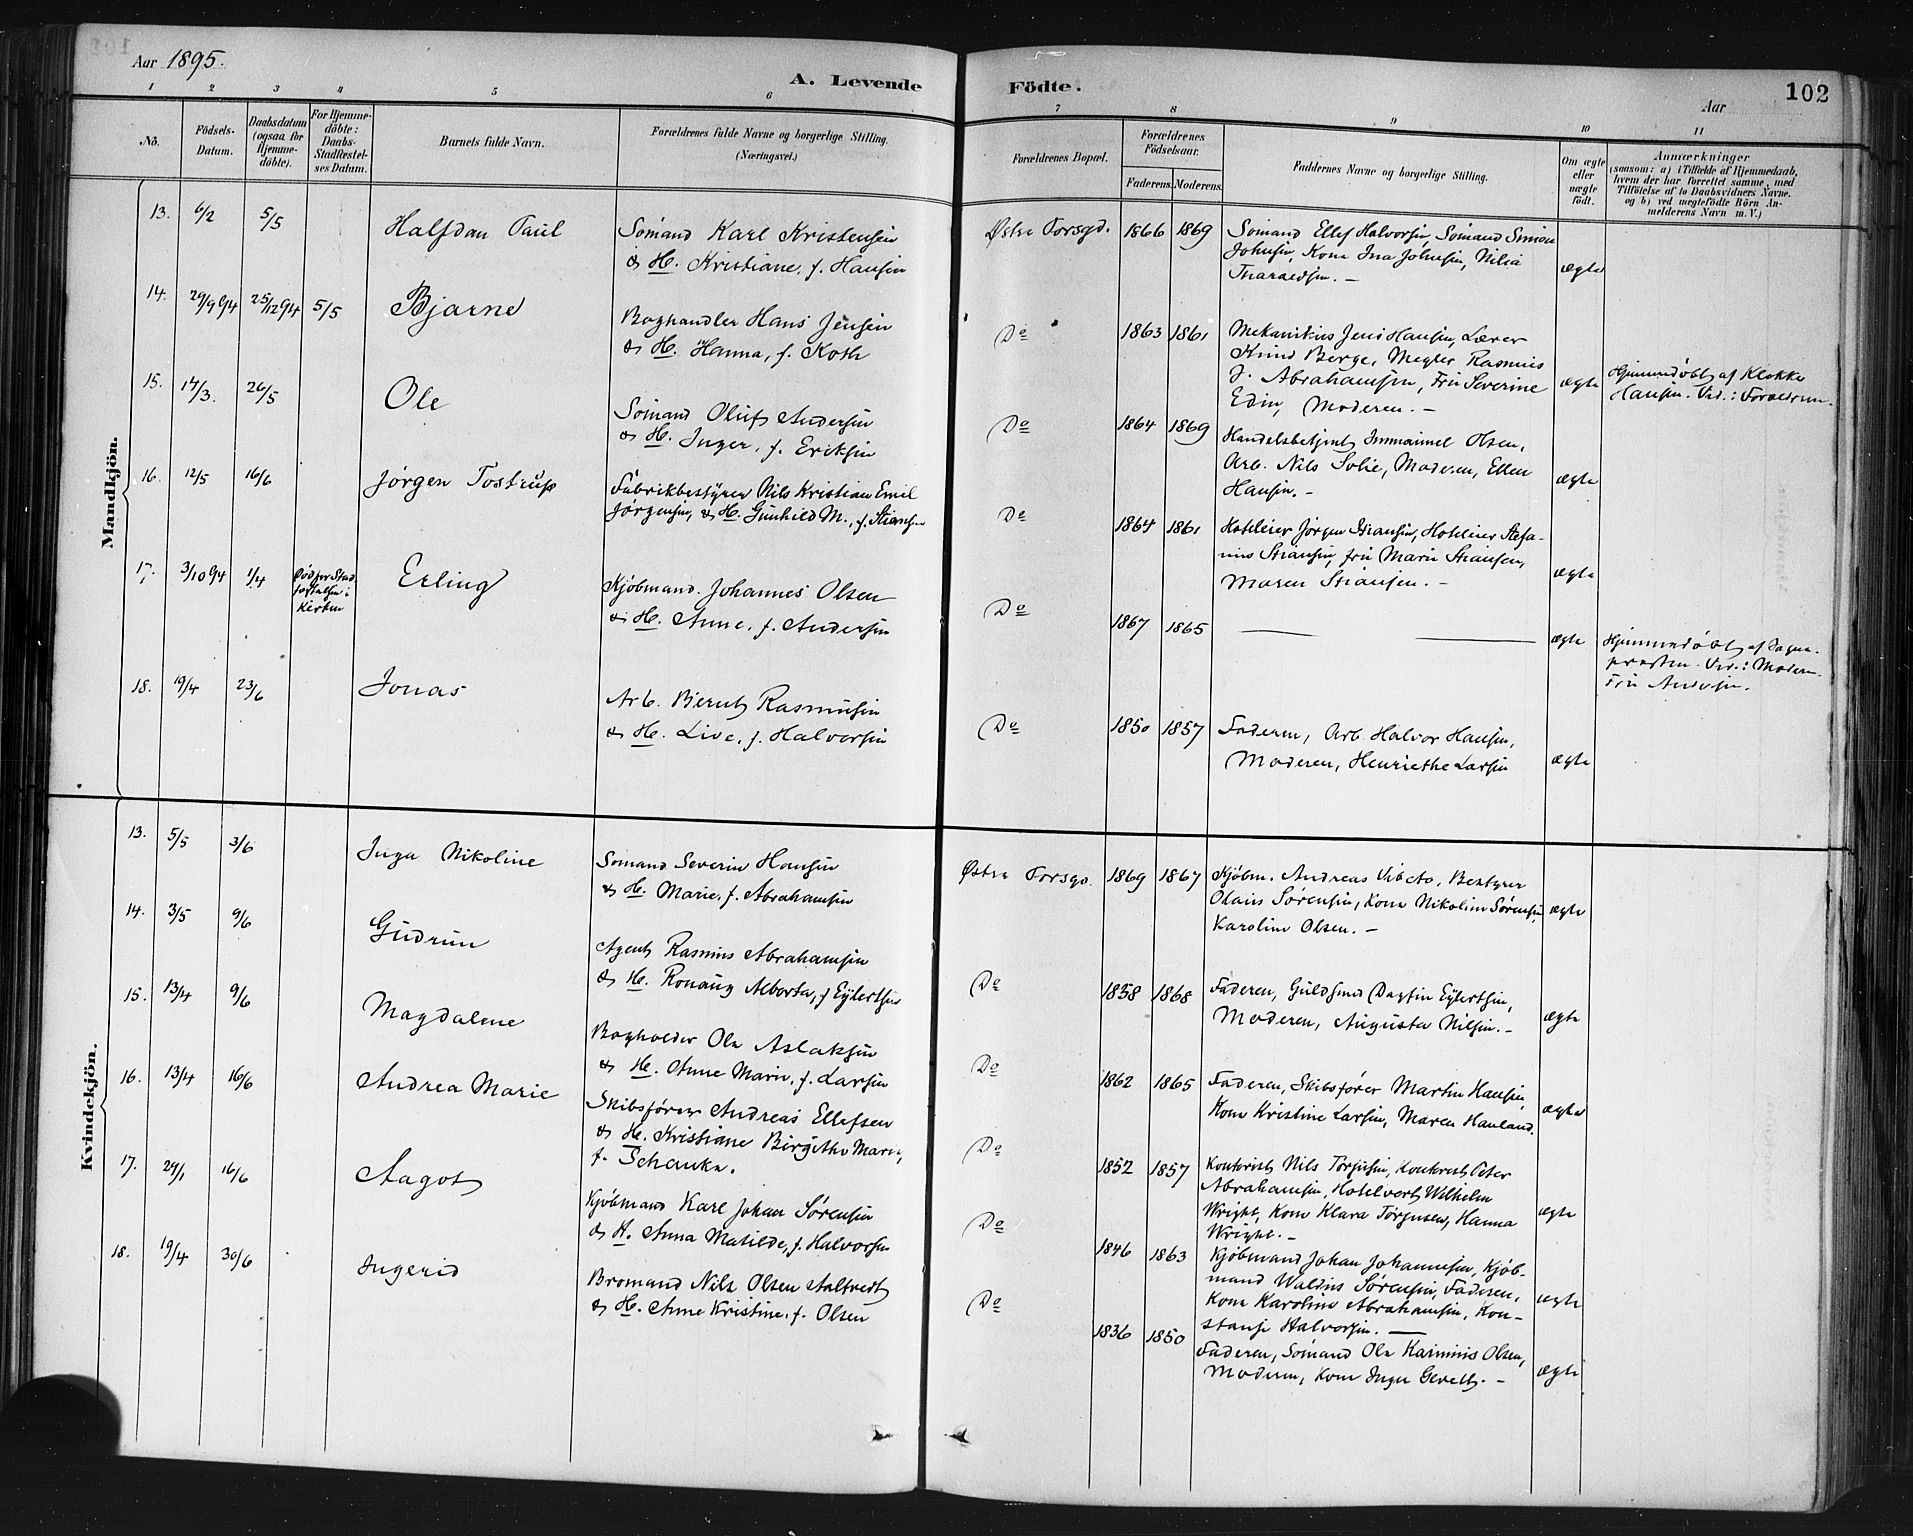 Aar 1895.
A. Levende Födte.
Aar
102
1
2
3
4
5
6
7
8
9
10
11
No.
Födsels-
Datum.
Daabsdatum
(ogsaa for
Hjemme-
döbte).
For Hjemme-
döbte:
Daabs-
Stadfestel-
ses Datum.
Barnets fulde Navn.
Forældrenes fulde Navne og borgerlige Stilling.
(Næringsvei.)
Forældrenes Bopæl.
Forældrenes
Födselsaar.
Faderens.
Moderens.
Faddernes Navne og borgerlige Stilling.
Om ægte
eller
uægte
födt.
Anmærkninger
(saasom: a) i Tilfælde af Hjemmedaab,
hvem der har forrettet samme, med
Tilföielse af to Daabsvidners Navne.
og b) ved uægtefödte Börn An-
melderens Navn m. V.)
Mandkjön.
13. 6/2 5/5 Halfdan Paul
Sömand Karl Kristensen
& H. Kristiane, f. Hansen
Østre Porsgd. 1866 1869
Sömand Ellef Halvorsen, Sömand Simon
Johnsen, Kone Ina Johnsen,
ægte
14. 29/9 94 25/12 94 5/5 Bjarne
Boghandler Hans Jensen
& H. Hanna, f. Koth
Do 1863 1861
Mekanikus Jens Hansen, Lærer
Knud Berge, Megler Rasmus
J. Abrahamsen, Fru Severine
Edin, Moderen. –
ægte
Hjemmedøbt af Klokker
Hansen. Vid.: Forældrene.
15. 14/3. 26/5 Ole
Sömand Oluf Andersen
& H. Inger, f. Eriksen
Do 1864 1869
Handelsbetjent Immanuel Olsen,
Arb. Nils Solie, Moderen, Ellen
Hansen. –
ægte
16. 12/5 16/6 Jørgen Tostrup
Fabrikbestyrer Nils Kristian Emil
Jörgensen, & H. Gunhild M., f. Stiansen
Do 1864 1861
Hoteleier Jørgen Stiansen, Hoteleier Stefa-
nus Stiansen, fru Marie Stiansen,
Maren Stiansen. –
ægte
17. 3/10 94 1/4 Død før Stad
festelsen i
Kirken
Erling
Kjöbmand. Johannes Olsen
& H. Anne, f. Andersen
Do 1867 1865
ægte
Hjemmedøbt af Sogne-
presten. Vid.: Moderen.
Fru Andersen.
18. 19/4 23/6 Jonas
Arb. Bernt Rasmusen
& H. Live, f. Halvorsen
Do 1850 1857
Faderen, Arb. Halvor Hansen,
Moderen, Henriethe Larsen
ægte
Kvindekjön.
13. 5/5 3/6 Inga Nikoline
Sömand Severin Hansen
& H. Marie, f. Abrahamsen
Østre Porsgd. 1869 1867
Kjöbm. Andreas Vibeto, Bestyrer
Olaus Sørensen, Kone Nikoline Sørensen,
Karoline Olsen. –
ægte
14. 3/5 9/6 Gudrun
Agent Rasmus Abrahamsen
& H. Ronaug Alberta, f Eylertsen
Do 1858 1868
Faderen, Guldsmd Dagfin Eylertsen,
Moderen, Augusta Nilsen. –
ægte
15. 13/4 9/6 Magdalene
Bogholder Ole Aslaksen
& H. Anne Marie, f. Larsen
Do 1862 1865
Faderen, Skibsfører Martin Hansen,
Kone Kristine Larsen, Maren Hauland.
ægte
16. 13/4 16/6 Andrea Marie
Skibsfører Andreas Ellefsen
& H. Kristiane Birgithe Marie,
f. Schanke.
Do 1852 1857
Kontorist Nils Torjusen, Kontorist Peter
Abrahamsen, Hotelvert Wilhelm
Wright, Kone Klara Tørjusen, Hanna
Wright. –
ægte
17. 24/1 16/6 Aagot
Kjöbmand Karl Johan Sørensen
& H. Anna Matilde, f. Halvorsen
Do 1846 1863
Kjöbmand Johan Johannesen, Kjöb-
mand Waldus Sørensen, Faderen,
Kone Karoline Abrahamsen, Kon-
stanse Halvorsen. –
ægte
18. 19/4 30/6 Ingerid
Bromand Nils Olsen Aaltvedt
& H. Anne Kristine, f. Olsen
Do 1836 1850
Faderen, Sömand Ole Karinius Olsen,
Moderen, Kone Inger
ægte